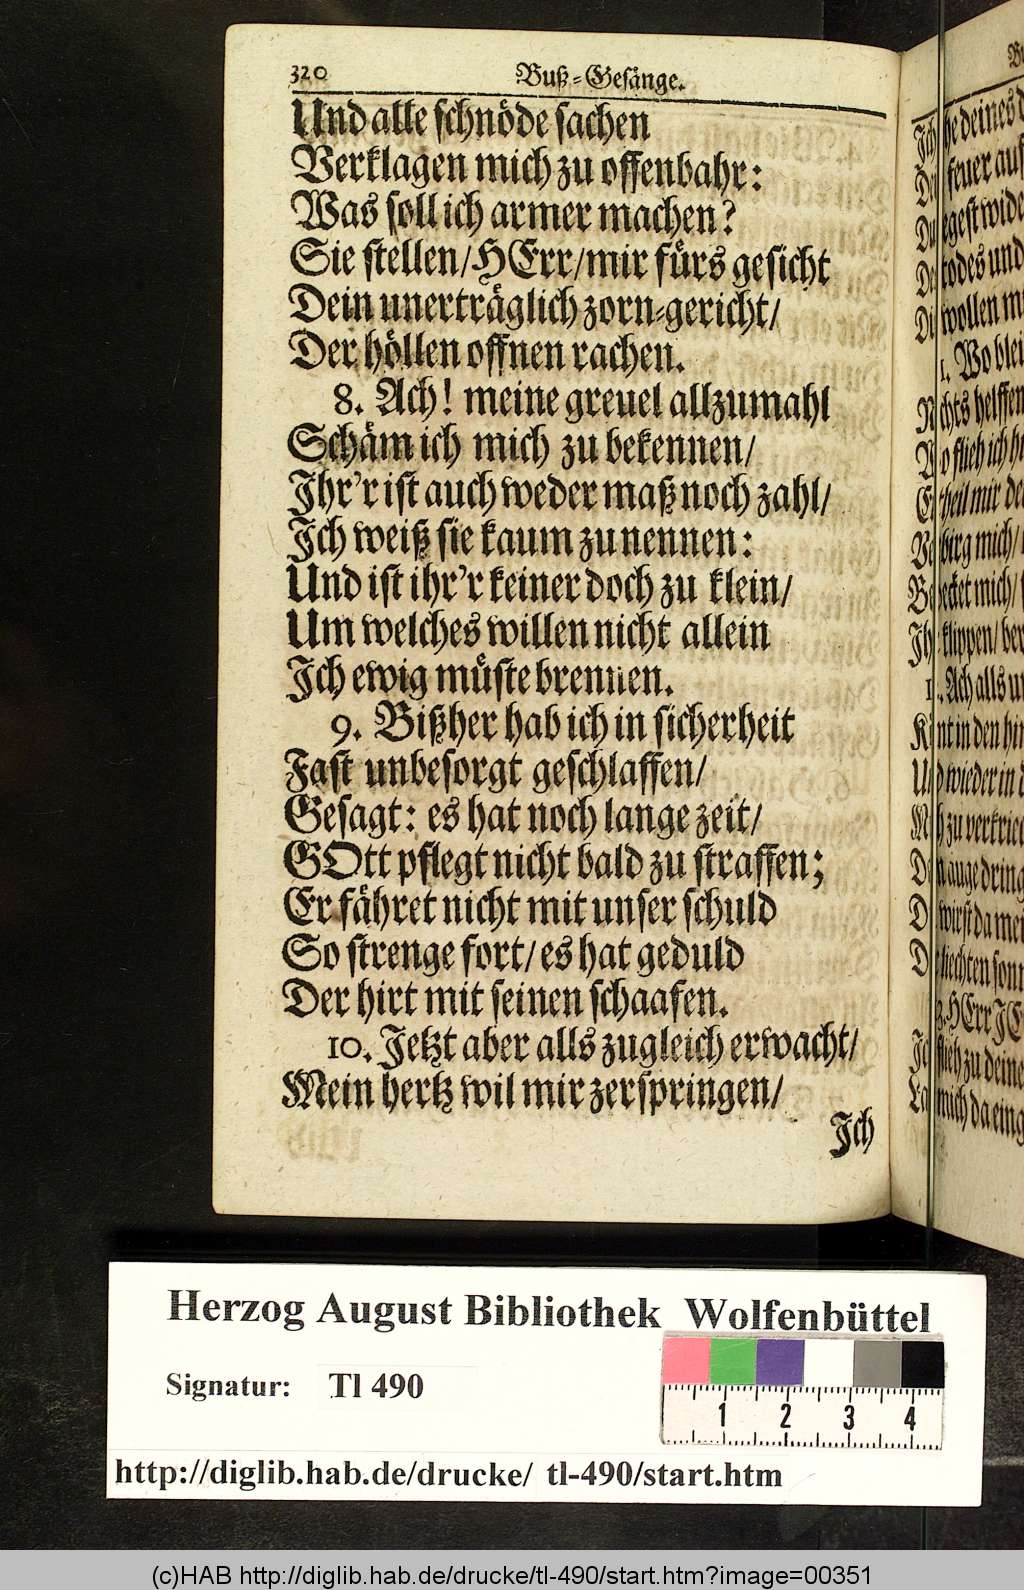 320 Buß-Gesänge.
Und alle schnöde sachen
Verklagen mich zu offenbahr:
Was soll ich armer machen?
Sie stellen/HErr/mir fürs gesicht
Dein unerträglich zorn-gericht/
Der höllen offnen rachen.
8. Ach! meine greuel allzumahl
Schäm ich mich zu bekennen/
Ihr'r ist auch weder maß noch zahl/
Ich weiß sie kaum zu nennen:
Und ist ihr'r keiner doch zu klein/
Um welches willen nicht allein
Ich ewig müste brennen.
9. Bißher hab ich in sicherheit
Fast unbesorgt geschlaffen/
Gesagt: es hat noch lange zeit/
GOtt pflegt nicht bald zu straffen;
Er fähret nicht mit unser schuld
So strenge fort/es hat geduld
Der hirt mit seinen schaafen.
10. Jetzt aber alls zugleich erwacht/
Mein hertz wil mir zerspringen/
Ich
deines
feuer auf
todes und
wollen
Wo
helffen
flieh ich
mir
mich/
mich/
klippen/
Ach alls
in den
wieder in
zu
auge
wirst da
liechten
HErr
flieh zu deine
mich da
Herzog August Bibliothek Wolfenbüttel
Signatur: Tl 490
1 2 3 4
http://diglib.hab.de/drucke/ tl-490/start.htm
(c)HAB http://diglib.hab.de/drucke/tl-490/start.htm?image=00351